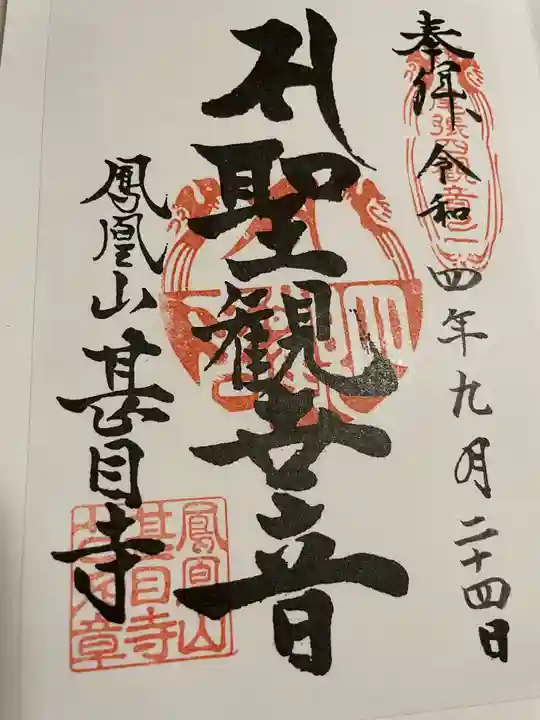 奉拝、令和四年九月二十四日
聖観世音
鳳凰山甚目寺
鳳凰山
甚目寺